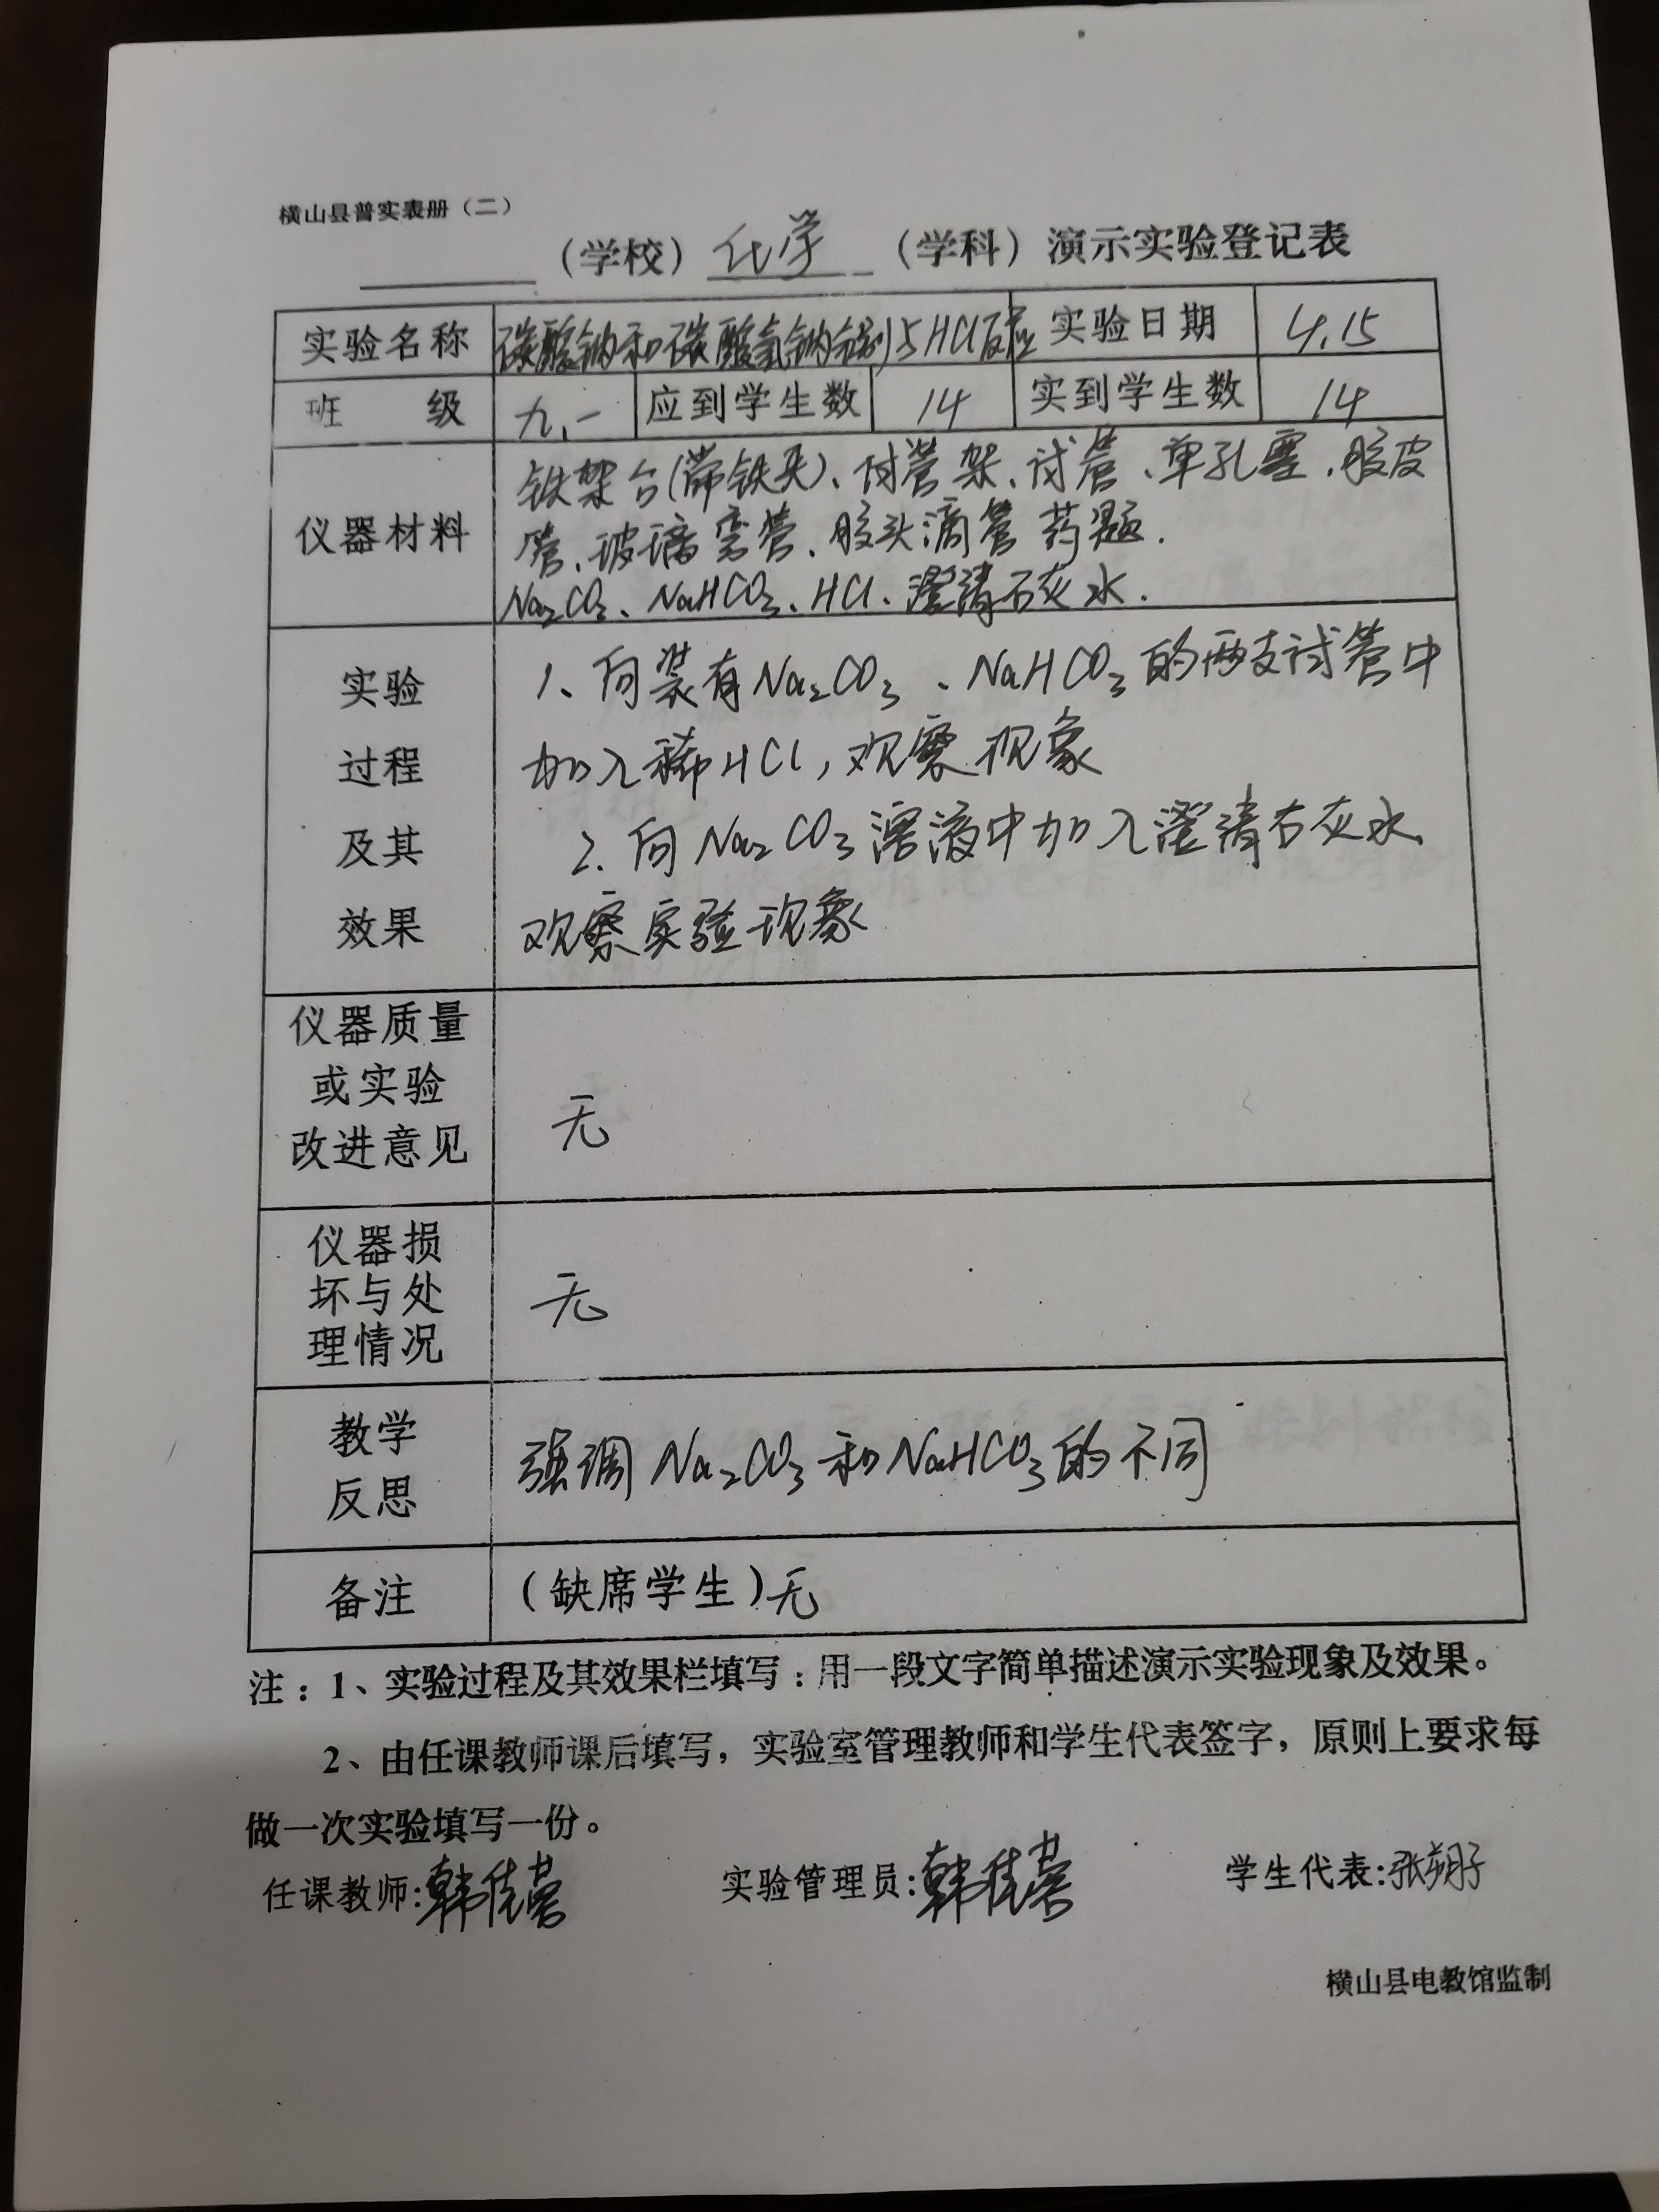 横山县普实表册（二）
（学校）化学（学科）演示实验登记表
实验名称 碳酸钠和碳酸氢钠分别与HCl反应 实验日期 4.15
班 级 九.一 应到学生数 14 实到学生数 14
铁架台(带铁夹)、试管架、试管、单孔塞、胶皮
仪器材料 管、玻璃弯管、胶头滴管 药品.
Na₂CO₃、NaHCO₃、HCl、澄清石灰水.
实验 1、向装有Na₂CO₃、NaHCO₃的两支试管中
过程 加入稀HCl,观察现象
及其 2.向Na₂CO₃溶液中加入澄清石灰水、
效果 观察实验现象
仪器质量
或实验
改进意见 无
仪器损
坏与处 无
理情况
教学 强调Na₂CO₃和NaHCO₃的不同
反思
备注 (缺席学生)无
注：1、实验过程及其效果栏填写：用一段文字简单描述演示实验现象及效果。
2、由任课教师课后填写，实验室管理教师和学生代表签字，原则上要求每
做一次实验填写一份。
任课教师:韩佳蓉 实验管理员:韩佳蓉 学生代表:张
横山县电教馆监制